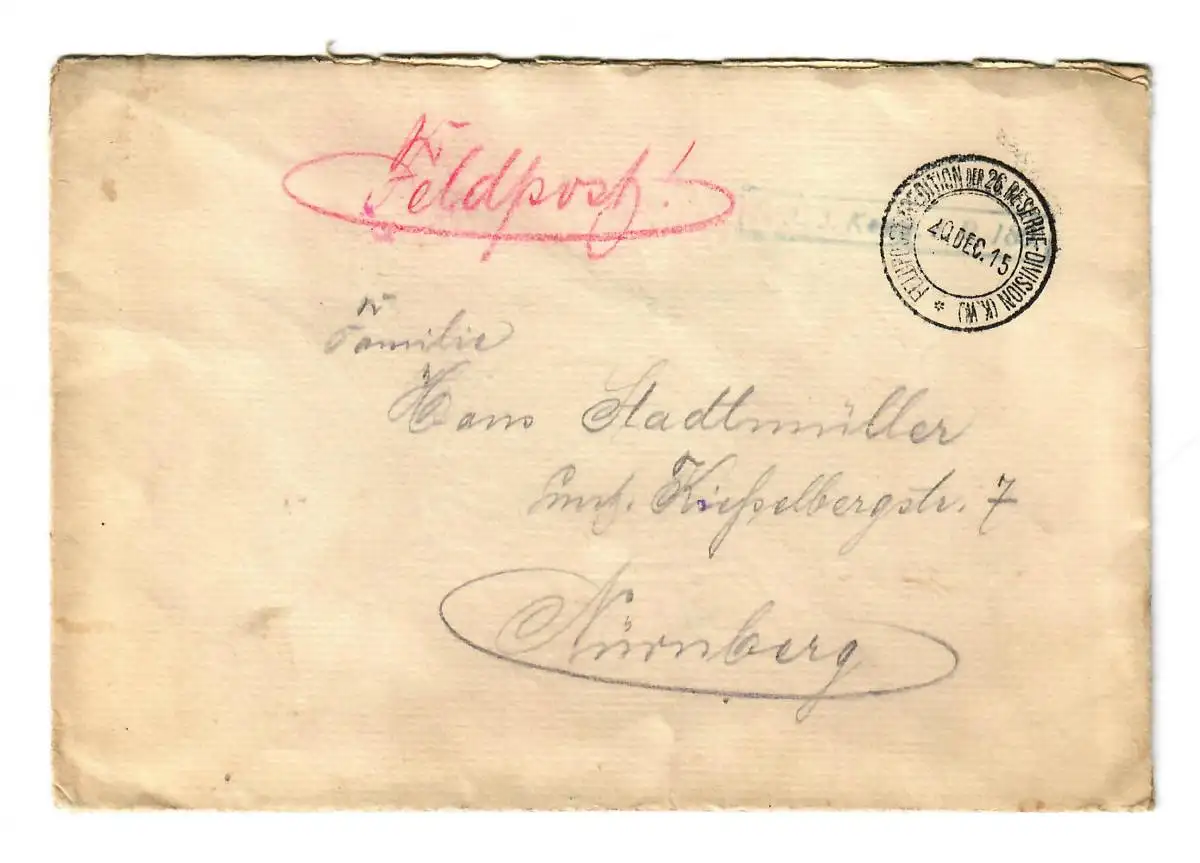 Feldpost!
FELDPOSTEXPEDITION DER 26. RESERVE-DIVISION (K.W.) *
20 DEC. 15
Familie
Hans Stadtmüller
Kießelbergstr. 7
Nürnberg